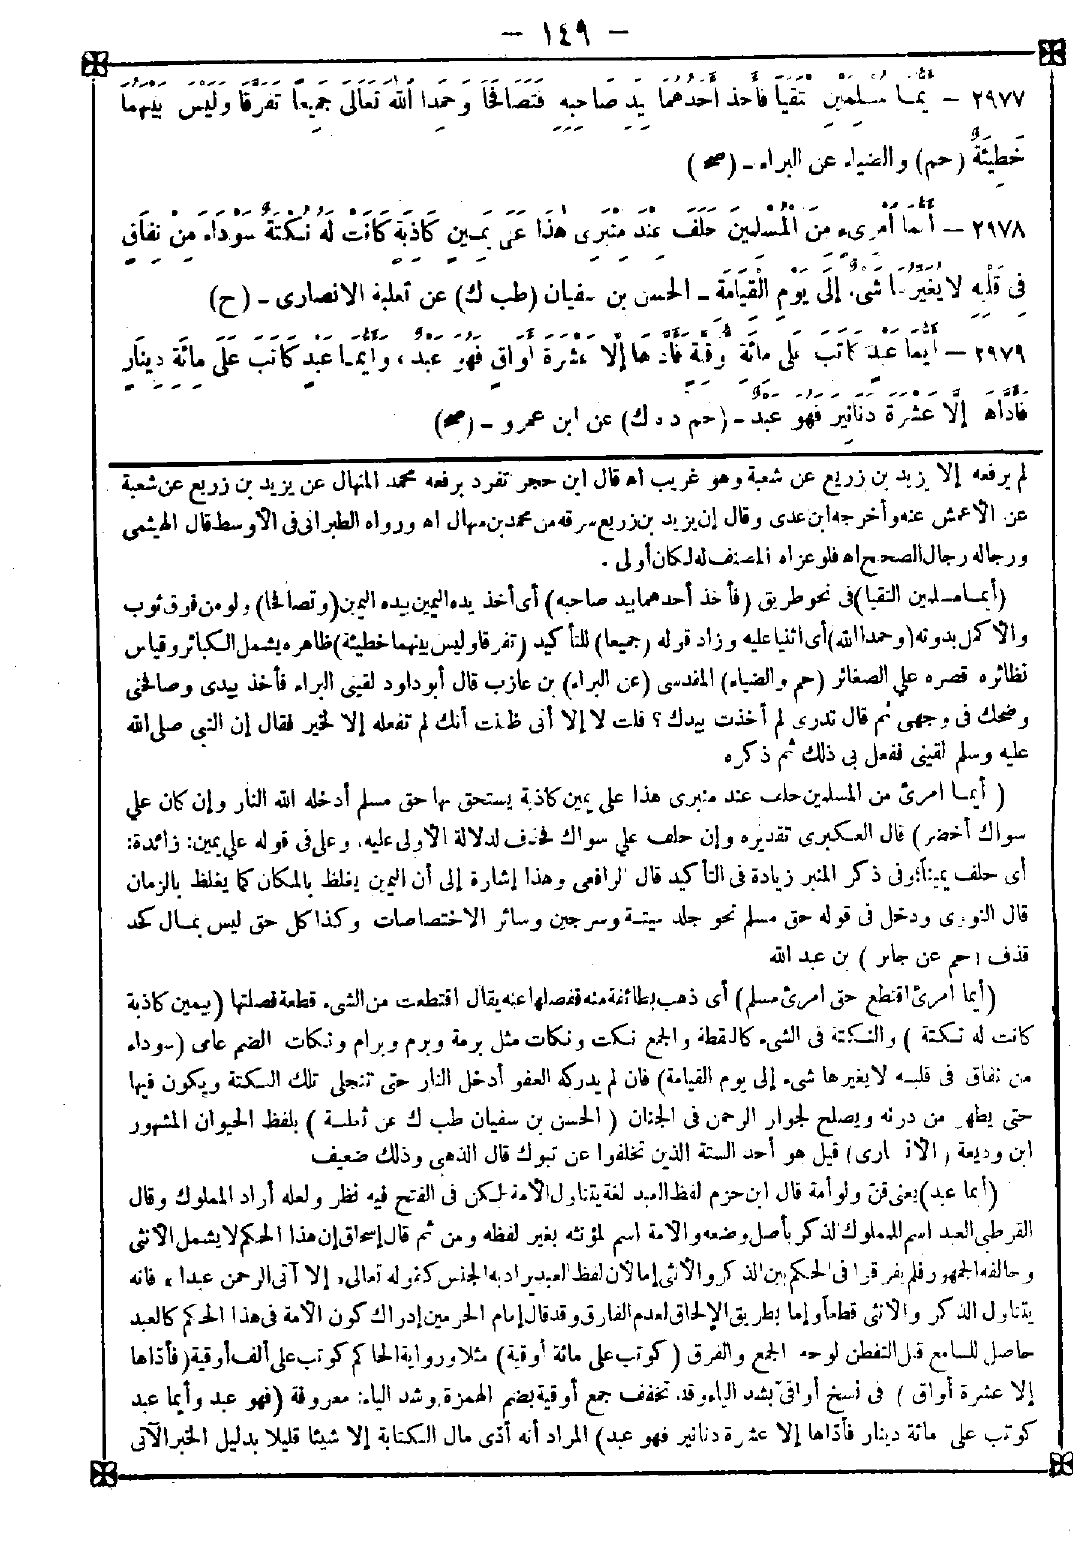 – ١٤٩ –
٢٩٧٧ – أَيُّمَا مُسْلِمَيْنِ الْتَقَيَا فَأَخَذَ أَحَدُهُمَا بِيَدِ صَاحِبِهِ فَتَصَافَحَا وَحَمِدَا اللهَ تَعَالَى جَمِيعاً تَفَرَّقَا وَلَيْسَ بَيْنَهُمَا
خَطِيئَةٌ (حم) والضياء عن البراء - (صح)
٢٩٧٨ – أَيُّمَا امْرِىءٍ مِنَ الْمُسْلِمِينَ حَلَفَ عِنْدَ مِنْبَرِى هٰذَا عَلَى يَمِينٍ كَاذِبَةٍ كَانَتْ لَهُ نُكْتَةٌ سَوْدَاءُ مِنْ نِفَاقٍ
فِى قَلْبِهِ لَا يُغَيِّرُهَا شَىْءٌ إِلَى يَوْمِ الْقِيَامَةِ - الحسن بن سفيان (طب ك) عن ثعلبة الانصارى - (ح)
٢٩٧٩ – أَيُّمَا عَبْدٍ كَاتَبَ عَلَى مِائَةِ أُوقِيَّةٍ فَأَدَّاهَا إِلَّا عَشْرَةَ أَوَاقٍ فَهُوَ عَبْدٌ، وَأَيُّمَا عَبْدٍ كَاتَبَ عَلَى مِائَةِ دِينَارٍ
فَأَدَّاهَا إِلَّا عَشْرَةَ دَنَانِيرَ فَهُوَ عَبْدٌ - (حم د ه ك) عن ابن عمرو - (صح)
لم يرفعه إلا يزيد بن زريع عن شعبة وهو غريب اه قال ابن حجر تفرد برفعه محمد المنهال عن يزيد بن زريع عن شعبة
عن الأعمش عنه وأخرجه ابن عدى وقال إن يزيد بن زريع سرقه من محمد بن منهال اه ورواه الطبرانى فى الأوسط قال الهيثمى
ورجاله رجال الصحيح اه فلو عزاه المصنف له لكان أولى .
(أيما مسلمين التقيا) فى نحو طريق (فأخذ أحدهما بيد صاحبه) أى أخذ يده اليمين بيده اليمين (وتصافحا) ولو من فوق ثوب
والأكمل بدونه (وحمدا الله) أى اثنيا عليه وزاد قوله (جميعا) للتأكيد (تفرقا وليس بينهما خطيئة) ظاهره يشمل الكبائر وقياس
نظائره قصره على الصغائر (حم والضياء) المقدسى (عن البراء) بن عازب قال أبو داود لقينى البراء فأخذ بيدى وصافحنى
وضحك فى وجهى ثم قال تدرى لم أخذت بيدك؟ قلت لا إلا أنى ظننت أنك لم تفعله إلا لخير فقال إن النبى صلى الله
عليه وسلم لقينى ففعل بى ذلك ثم ذكره
(أيما امرئ من المسلمين حلف عند منبرى هذا على يمين كاذبة يستحق بها حق مسلم أدخله الله النار وإن كان على
سواك أخضر) قال العكبرى تقديره وإن حلف على سواك فحذف لدلالة الأولى عليه، وعلى فى قوله على يمين: زائدة:
أى حلف يمينا؛ وفى ذكر المنبر زيادة فى التأكيد قال الرافعى وهذا إشارة إلى أن اليمين يغلظ بالمكان كما يغلظ بالزمان
قال النووى ودخل فى قوله حق مسلم نحو جلد ميتة وسرجين وسائر الاختصاصات وكذا كل حق ليس بمال كحد
قذف (حم عن جابر) بن عبد الله
(أيما امرئ اقتطع حق امرئ مسلم) أى ذهب بطائفة منه ففصلها عنه يقال اقتطعت من الشىء قطعة فصلتها (بيمين كاذبة
كانت له نكتة) والنكتة فى الشىء كالنقطة والجمع نكت ونكات مثل برمة وبرم وبرام ونكات الضم عامى (سوداء
من نفاق فى قلبه لا يغيرها شىء إلى يوم القيامة) فان لم يدركه العفو أدخل النار حتى تنجلى تلك النكتة ويكون فيها
حتى يطهر من درنه ويصلح لجوار الرحمن فى الجنان (الحسن بن سفيان طب ك عن ثعلبة) بلفظ الحيوان المشهور
ابن وديعة (الأنصارى) قيل هو أحد الستة الذين تخلفوا عن تبوك قال الذهبى وذلك ضعيف
(أيما عبد) يعنى قن ولو أمة قال ابن حزم لفظ العبد لغة يتناول الأمة لكن فى الفتح فيه نظر ولعله أراد المملوك وقال
القرطبى العبد اسم للمملوك الذكر بأصل وضعه والأمة اسم لمؤنثه بغير لفظه ومن ثم قال إسحاق إن هذا الحكم لا يشمل الأنثى
وخالفه الجمهور فلم يفرقوا فى الحكم بين الذكر والأنثى إما لأن لفظ العبد يراد به الجنس كقوله تعالى، إلا آتى الرحمن عبدا، فانه
يتناول الذكر والأنثى قطعا وإما بطريق الإلحاق لعدم الفارق وقد قال إمام الحرمين إدراك كون الأمة فى هذا الحكم كالعبد
حاصل للسامع قبل التفطن لوجه الجمع والفرق (كوتب على مائة أوقية) مثلا ورواية الحاكم كوتب على ألف أوقية (فأداها
إلا عشرة أواق) فى نسخ أواقىّ بشد الياء وقد تخفف جمع أوقية بضم الهمزة وشد الياء: معروفة (فهو عبد وأيما عبد
كوتب على مائة دينار فأداها إلا عشرة دنانير فهو عبد) المراد أنه أدى مال الكتابة إلا شيئا قليلا بدليل الخبر الآتى